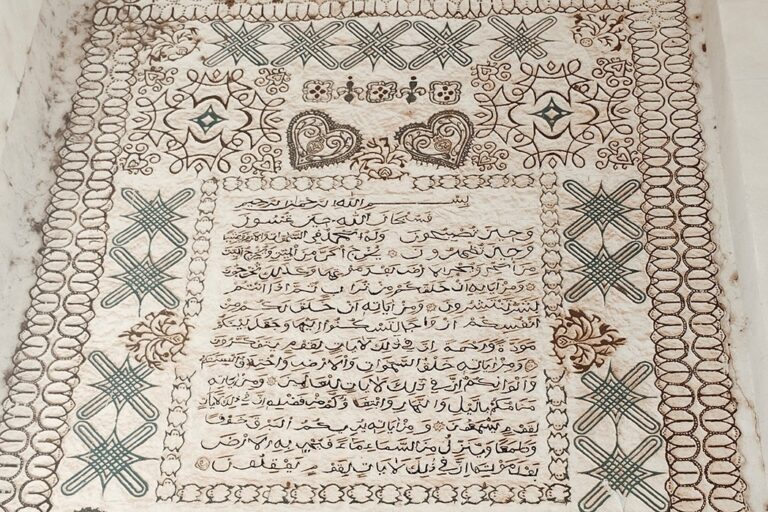 بسم الله الرحمن الرحيم
فسبحان الله حين تمسون
وحين تصبحون وله الحمد في السموات والارض وعشيا
وحين تظهرون يخرج الحي من الميت ويخرج الميت
من الحي ويحي الارض بعد موتها وكذلك تخرجون
ومن آياته ان خلقكم من تراب ثم اذا انتم
بشر تنتشرون ومن آياته ان خلق لكم من
انفسكم ازواجا لتسكنوا اليها وجعل بينكم
مودة ورحمة ان في ذلك لآيات لقوم يتفكرون
ومن آياته خلق السموات والارض واختلاف السنتكم
والوانكم ان في ذلك لآيات للعالمين ومن آياته
منامكم بالليل والنهار وابتغاؤكم من فضله ان في ذلك لآيات
لقوم يسمعون ومن آياته يريكم البرق خوفا
وطمعا وينزل من السماء ماء فيحيي به الارض
بعد موتها ان في ذلك لآيات لقوم يعقلون